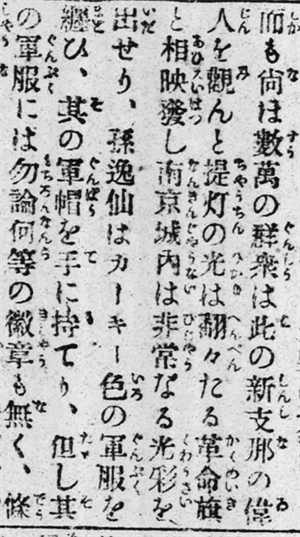 而も尙ほ數萬の群衆は此の新支那の偉
人を觀んと提灯の光は翻々たる革命旗
と相映發し南京城內は非常なる光彩を
出せり、孫逸仙はカーキー色の軍服を
纒ひ、其の軍帽を手に持てり、但し其
の軍服には勿論何等の徽章も無く、條